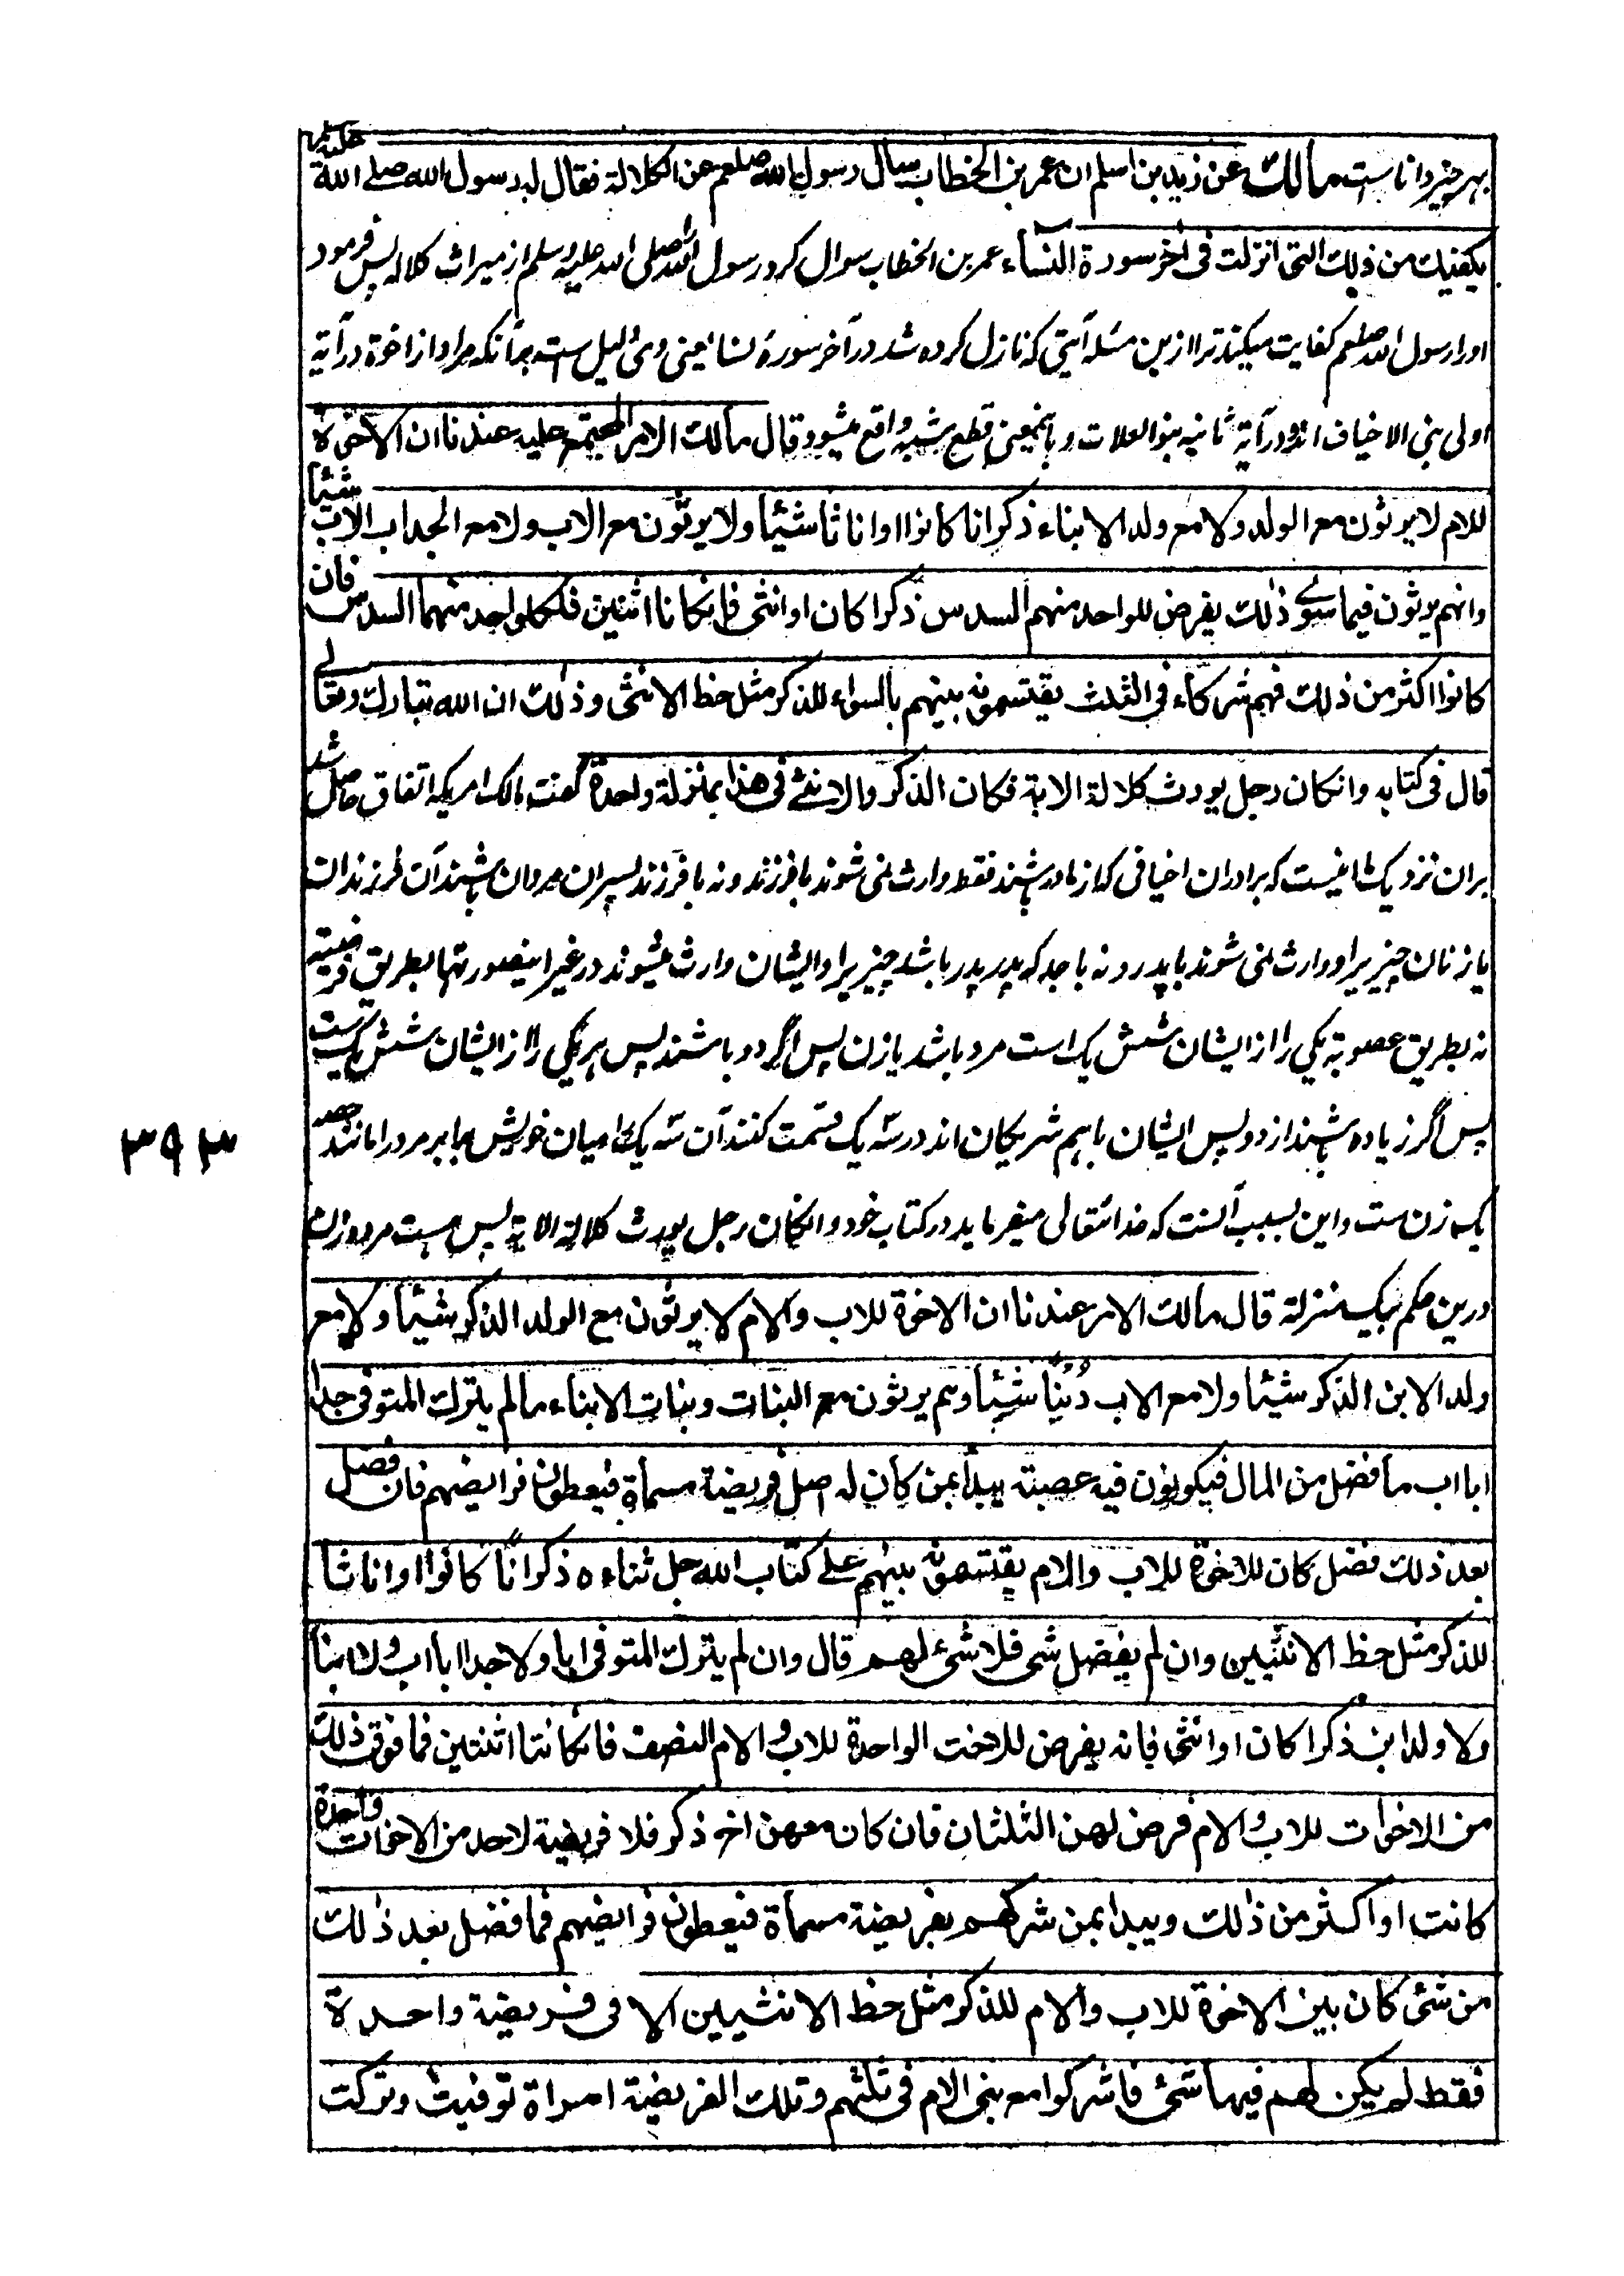 بهر چیز داناست مالك عن زيد بن اسلم ان عمر بن الخطاب سال رسول الله صلعم عن الكلالة فقال له رسول الله صلے الله عليه وسلم
يكفيك من ذلك التى انزلت فى اخر سورة النساء عمر بن الخطاب سوال کرد رسول الله صلی الله علیه وسلم از میراث کلاله پس فرمود
او را رسول الله صلعم کفایت میکند ترا ازین مسئله آیتی که نازل کرده شد در آخر سورهٔ نسا یعنی وی دلیل ست بر آنکه مراد از اخوة در آیة
اولی بنی الاخیاف اند و در آیة ثانیه بنو العلات و باینمعنی قطع شبه واقع میشود قال مالك الامر المجتمع عليه عندنا ان الاخوة
للام لا يرثون مع الولد ولا مع ولد الابناء ذكرانا كانوا او اناثا شيئا ولا يرثون مع الاب ولا مع الجد اب الاب شيئا
وانهم يرثون فيما سوے ذلك يفرض للواحد منهم السدس ذكرا كان او انثى فان كانا اثنين فلكل واحد منهما السدس فان
كانوا اكثر من ذلك فهم شركاء فى الثلث يقتسمونه بينهم بالسواء للذكر مثل حظ الانثى وذلك ان الله تبارك وتعالے
قال فى كتابه وان كان رجل يورث كلالة الاية فكان الذكر والانثے فى هذا بمنزلة واحدة گفت مالک امریکه اتفاق حاصل شد
بران نزدیک ما اینست که برادران اخیافی که از مادر باشند فقط وارث نمی شوند با فرزند و نه با فرزند پسران مردان باشند آن فرزندان
یا زنان چیزیرا و وارث نمی شوند با پدر و نه با جد که پدر پدر باشد چیزیرا و ایشان وارث میشوند در غیر اینصورتها بطریق فرضیته
نه بطریق عصوبة یکی را از ایشان شش یک است مرد باشد یا زن پس اگر دو باشند پس هر یکی را از ایشان شش یک ست
پس اگر زیاده باشند از دو پس ایشان باهم شریکان اند در سه یک قسمت کنند آن سه یک را میان خویش برابر مرد را مانند حصه
یک زن ست و این بسبب آنست که خدا تعالی میفرماید در کتاب خود وان كان رجل يورث كلالة الاية پس هست مرد و زن
درین حکم بیک منزلة قال مالك الامر عندنا ان الاخوة للاب والام لا يرثون مع الولد الذكر شيئا ولا مع
ولد الابن الذكر شيئا ولا مع الاب دُنْيًا شيئا وهم يرثون مع البنات وبنات الابناء ما لم يترك المتوفى جدا
ابا اب ما فضل من المال فيكونون فيه عصبة يبدأ بمن كان له اصل فريضة مسماة فيعطون فرايضهم فان فضل
بعد ذلك فضل كان للاخوة للاب والام يقتسمونه بينهم علے كتاب الله جل ثناءه ذكرانًا كانوا او اناثا
للذكر مثل حظ الانثيين وان لم يفضل شى فلا شئ لهم قال وان لم يترك المتوفى ابا ولا جدا ابا اب ولا ابنا
ولا ولد ابن ذكرا كان او انثى فانه يفرض للاخت الواحدة للاب والام النصف فان كانتا اثنتين فما فوق ذلك
من الاخوات للاب والام فرض لهن الثلثان فان كان معهن اخ ذكر فلا فريضة لاحد من الاخوات واحدة
كانت او اكثر من ذلك ويبدا بمن شركهم بفريضة مسماة فيعطون فرايضهم فما فضل بعد ذلك
من شئ كان بين الاخوة للاب والام للذكر مثل حظ الانثيين الا فى فريضة واحدة
فقط لم يكن لهم فيها شئ فاشركوا مع بنى الام فى ثلثهم وتلك الفريضة امراة توفيت وتركت
۳۹۳